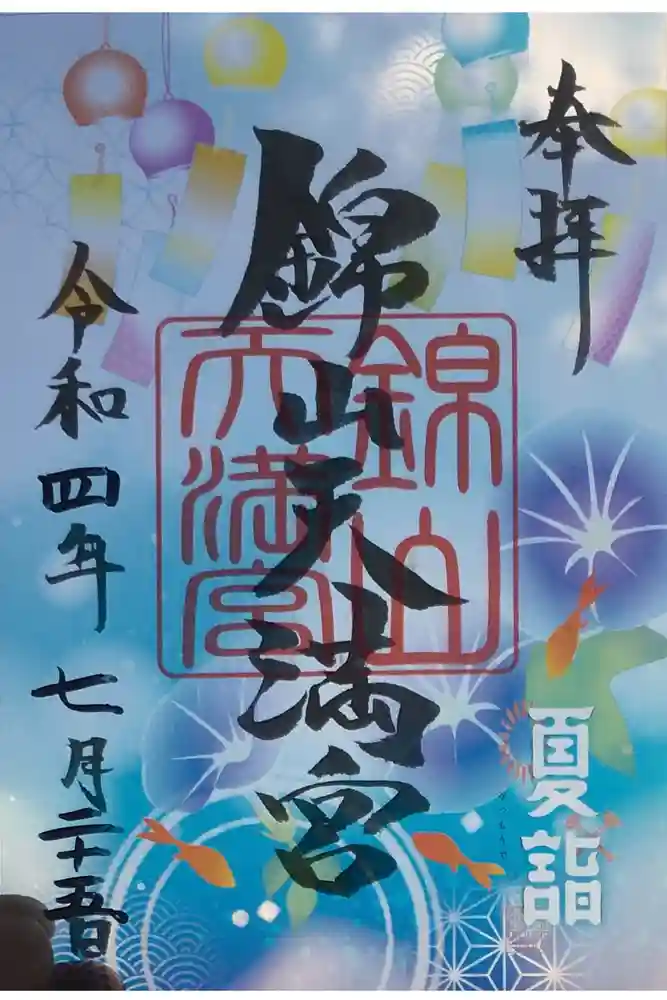 奉拝
錦山天満宮
錦山
天満宮
令和四年七月二十五日
夏詣